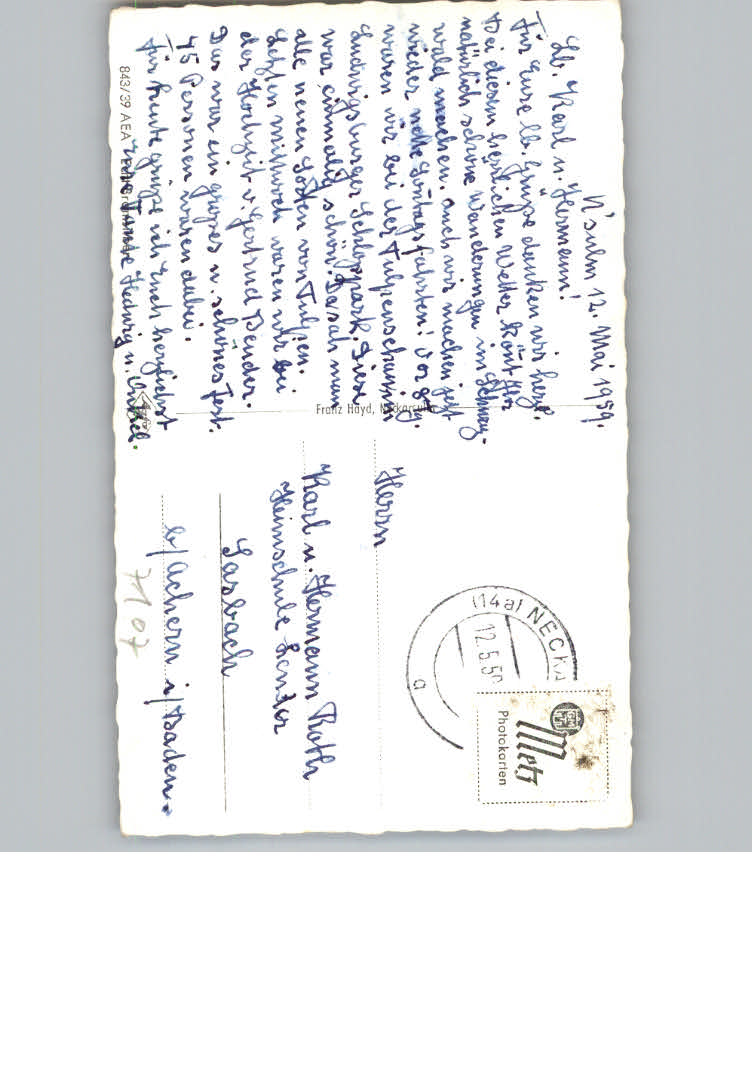 N'sulm 12. Mai 1959.
Lb. Karl u. Hermann!
Für Eure lb. Grüße danken wir herzl.
Bei diesem herrlichen Wetter könt Ihr
natürlich schöne Wanderungen im Schwarz-
wald machen. auch wir machen jetzt
wieder nette Sontagsfahrten! vor
waren wir bei der Tulpenschau im
Ludwigsburger Schloßpark. Diese
war einmalig schön. Da sah man
alle neuen Sorten von Tulpen.
Letzten mittwoch waren wir bei
der Hochzeit v. Gertrud Bender.
Das war ein großes u. schönes Fest.
45 Personen waren dabei.
Für heute grüße ich Euch herzlichst
Eure Tante Hedwig u. Onkel.
843/39 AEA
Franz Hayd, Neckarsulm
(14a) NECKA
12.5.59
a
Metz
Photokarten
Herrn
Karl u. Hermann Roth
Heimschule Lender
Sasbach
b/Achern i/Baden.
7107